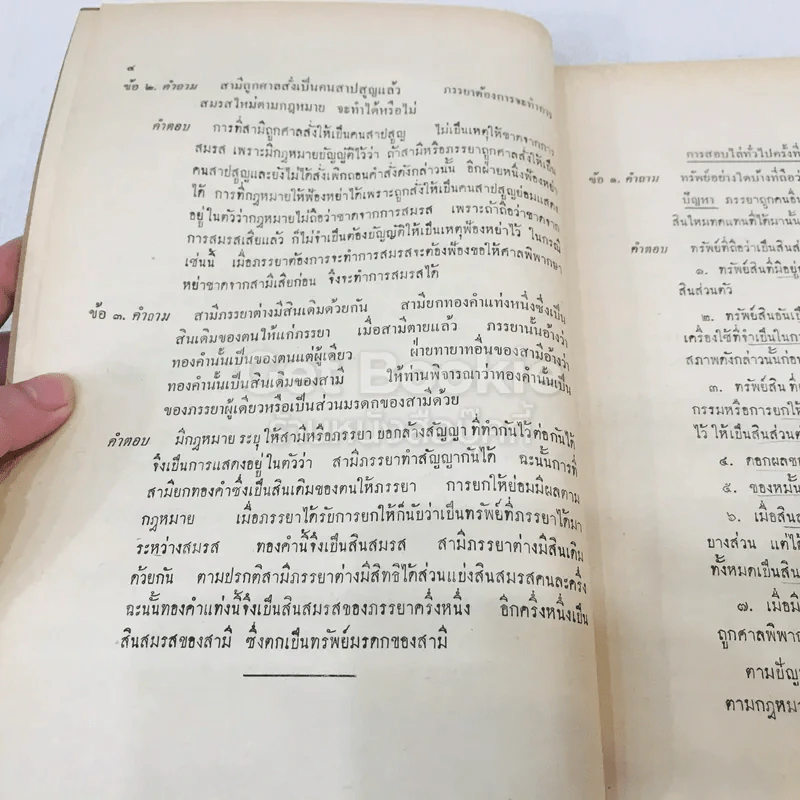 ๔
ข้อ ๒. คำถาม สามีถูกศาลสั่งเป็นคนสาปสูญแล้ว ภรรยาต้องการจะทำการ
สมรสใหม่ตามกฎหมาย จะทำได้หรือไม่
คำตอบ การที่สามีถูกศาลสั่งให้เป็นคนสาปสูญ ไม่เป็นเหตุให้ขาดจากการ
สมรส เพราะมีกฎหมายบัญญัติไว้ว่า ถ้าสามีหรือภรรยาถูกศาลสั่งให้เป็น
คนสาปสูญและยังไม่ได้สั่งเพิกถอนคำสั่งดังกล่าวนั้น อีกฝ่ายหนึ่งฟ้องหย่า
ได้ การที่กฎหมายให้ฟ้องหย่าได้เพราะถูกสั่งให้เป็นคนสาปสูญย่อมแสดง
อยู่ในตัวว่ากฎหมายไม่ถือว่าขาดจากการสมรส เพราะถ้าถือว่าขาดจาก
การสมรสเสียแล้ว ก็ไม่จำเป็นต้องบัญญัติให้เป็นเหตุฟ้องหย่าไว้ ในกรณี
เช่นนี้ เมื่อภรรยาต้องการจะทำการสมรสจะต้องฟ้องขอให้ศาลพิพากษา
หย่าขาดจากสามีเสียก่อน จึงจะทำการสมรสได้
ข้อ ๓. คำถาม สามีภรรยาต่างมีสินเดิมด้วยกัน สามียกทองคำแท่งหนึ่งซึ่งเป็น
สินเดิมของตนให้แก่ภรรยา เมื่อสามีตายแล้ว ภรรยานั้นอ้างว่า
ทองคำนั้นเป็นของตนแต่ผู้เดียว ฝ่ายทายาทอื่นของสามีอ้างว่า
ทองคำนั้นเป็นสินเดิมของสามี ให้ท่านพิจารณาว่าทองคำนั้นเป็น
ของภรรยาผู้เดียวหรือเป็นส่วนมรดกของสามีด้วย
คำตอบ มีกฎหมาย ระบุ ให้สามีหรือภรรยา บอกล้างสัญญา ที่ทำกันไว้ต่อกันได้
จึงเป็นการแสดงอยู่ในตัวว่า สามีภรรยาทำสัญญากันได้ ฉะนั้นการที่
สามียกทองคำซึ่งเป็นสินเดิมของตนให้ภรรยา การยกให้ย่อมมีผลตาม
กฎหมาย เมื่อภรรยาได้รับการยกให้ก็นับว่าเป็นทรัพย์ที่ภรรยาได้มา
ระหว่างสมรส ทองคำนี้จึงเป็นสินสมรส สามีภรรยาต่างมีสินเดิม
ด้วยกัน ตามปรกติสามีภรรยาต่างมีสิทธิได้ส่วนแบ่งสินสมรสคนละครึ่ง
ฉะนั้นทองคำแท่งนี้จึงเป็นสินสมรสของภรรยาครึ่งหนึ่ง อีกครึ่งหนึ่งเป็น
สินสมรสของสามี ซึ่งตกเป็นทรัพย์มรดกของสามี
การสอบไล่ทั่วไปครั้งที่
ข้อ ๑. คำถาม ทรัพย์อย่างใดบ้างที่ถือว่า
ปัญหา ภรรยาถูกคนอื่น
สินไหมทดแทนที่ได้มานั้น
คำตอบ ทรัพย์ที่ถือว่าเป็นสินส่ว
๑. ทรัพย์สินที่มีอยู่
สินส่วนตัว
๒. ทรัพย์สินอันเป็น
เครื่องใช้ที่จำเป็นในการ
สภาพดังกล่าวนั้นก่อน
๓. ทรัพย์สิน ที่
กรรมหรือการยกให้
ไว้ ให้เป็นสินส่วนตัว
๔. ดอกผลของ
๕. ของหมั้น
๖. เมื่อสินส
บางส่วน แต่ได้
ทั้งหมดเป็นสิน
๗. เมื่อมี
ถูกศาลพิพาก
ตามปัญ
ตามกฎหมาย
Get Bookie
ร้านหนังสือเก็ทบุ๊คกี้